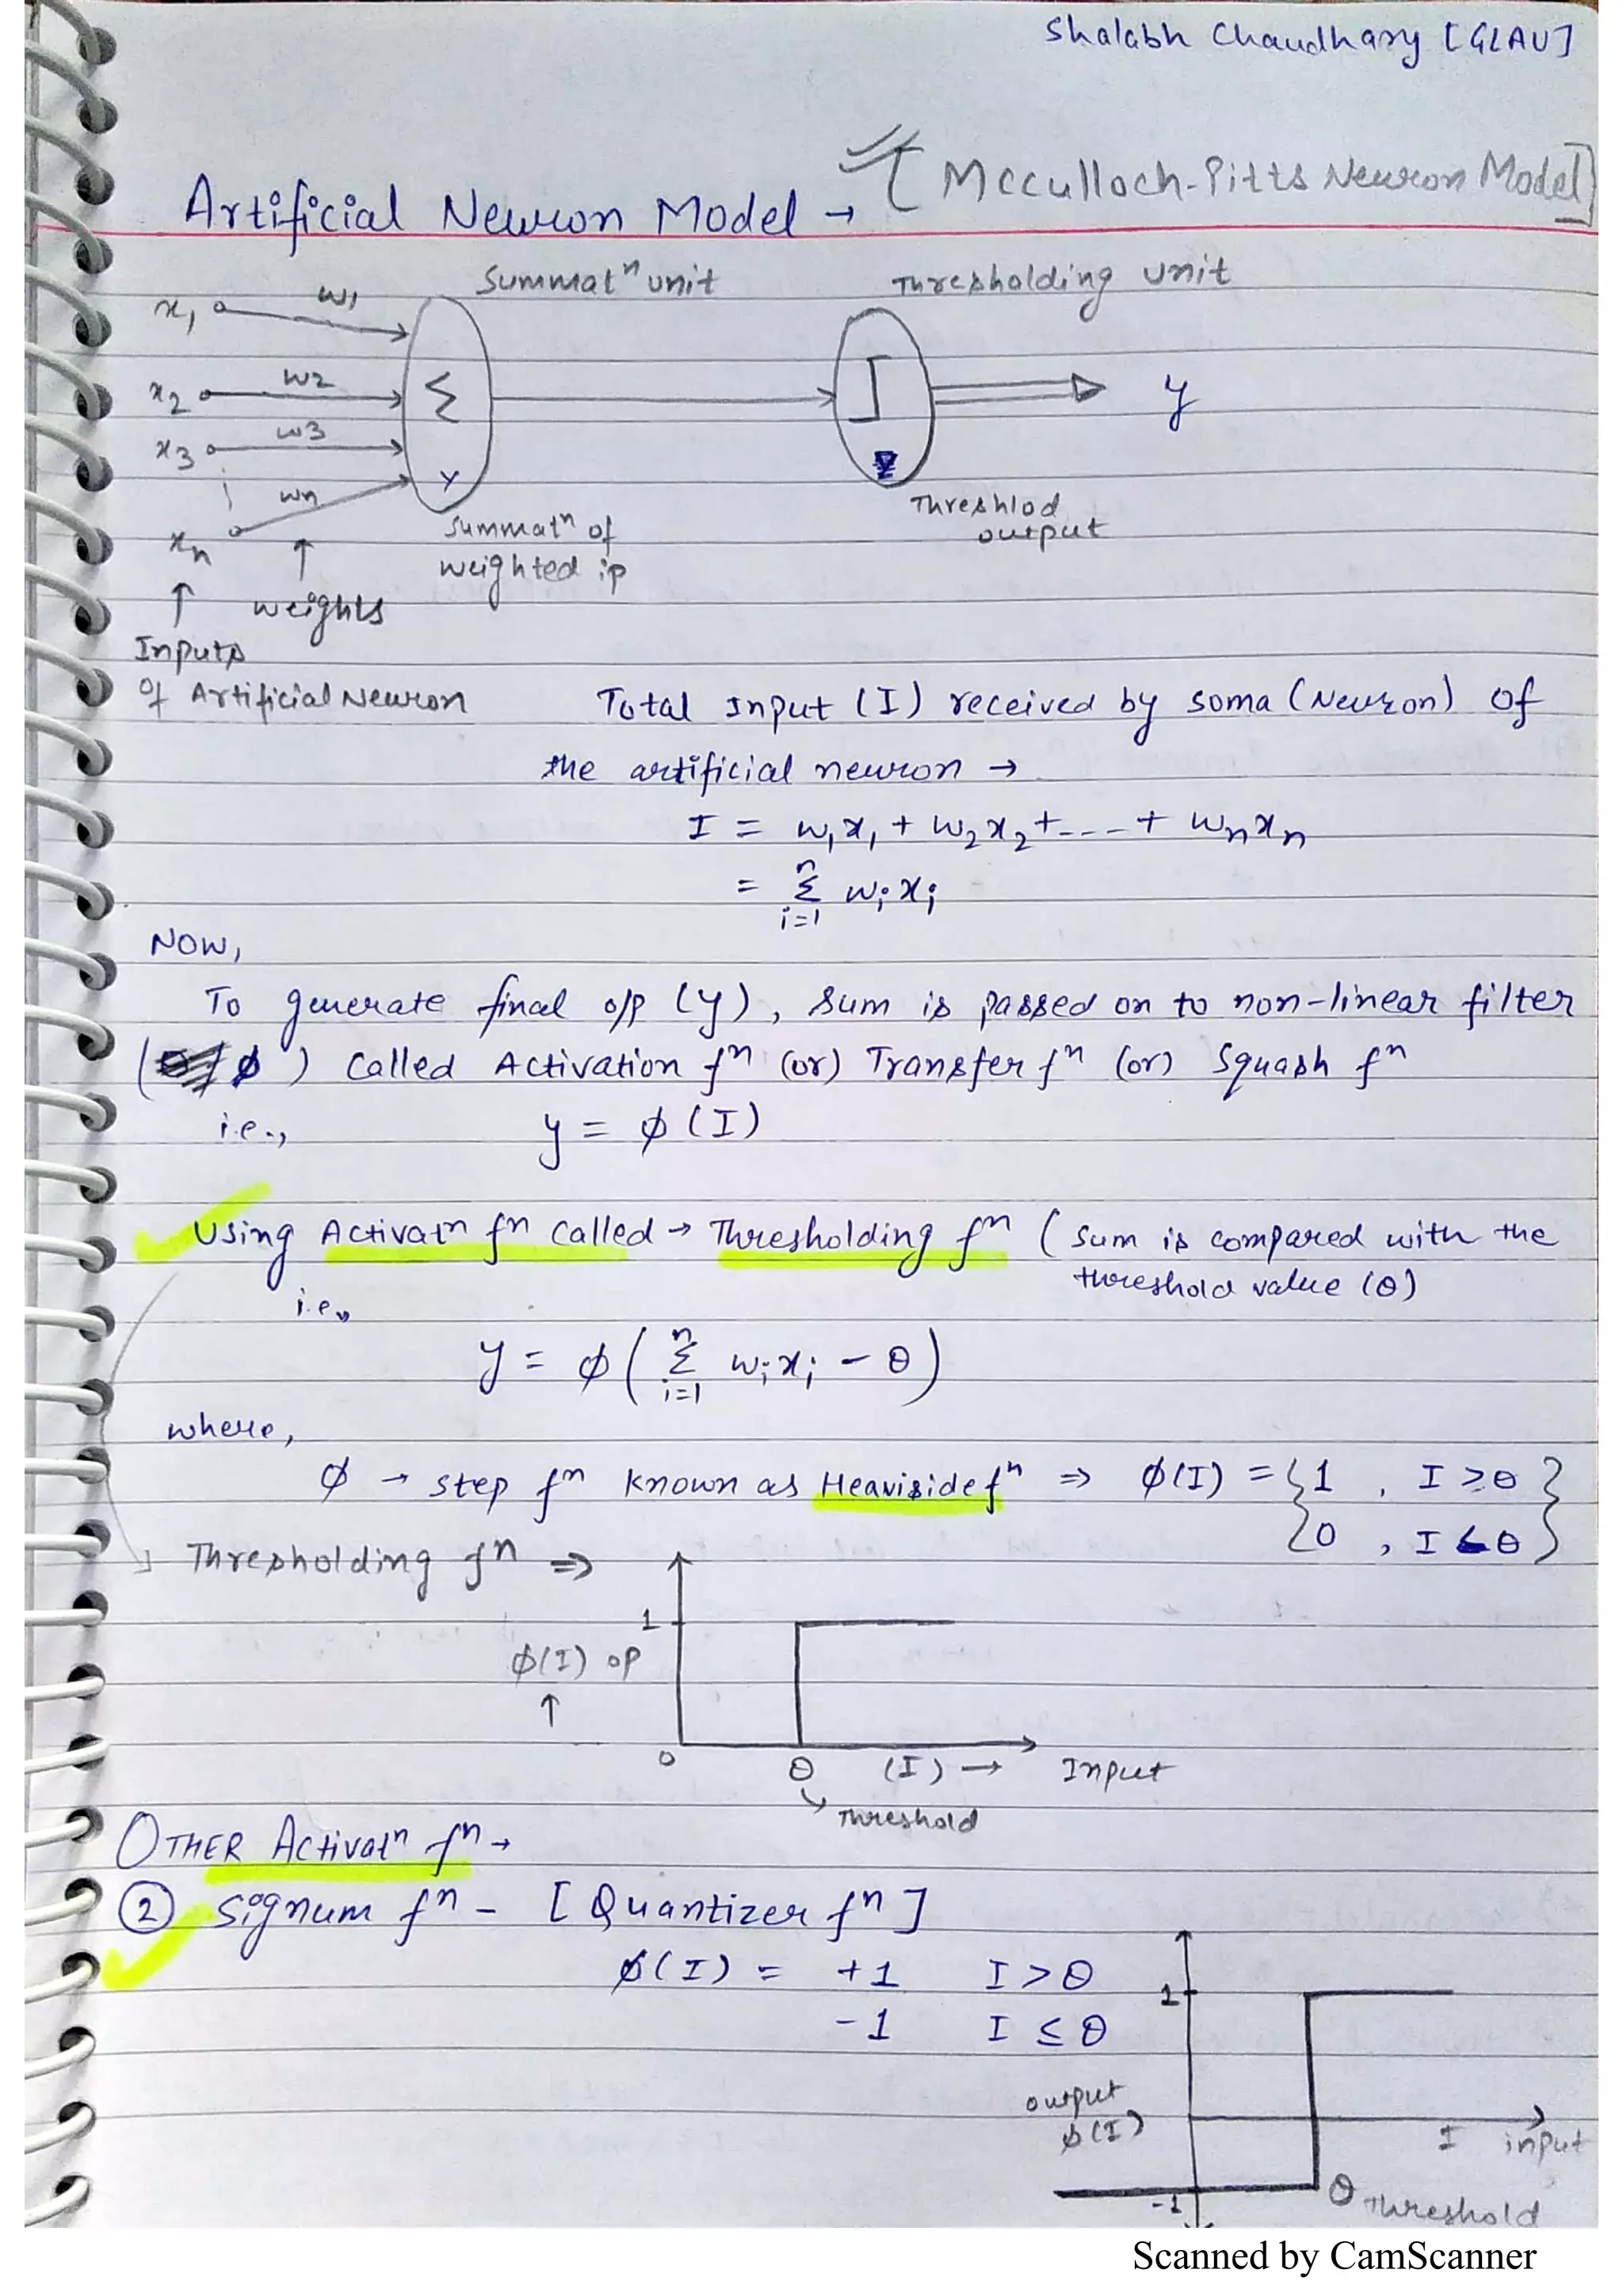 Shalabh Chaudhary [GLAU]
Artificial Neuron Model → [Mcculloch-Pitts Neuron Model]
Summatⁿ unit
Thresholding unit
x₁ w₁
x₂ w₂
x₃ w₃
xn wn
Σ
Y
y
Threshlod
output
Summatⁿ of
weighted ip
↑ weights
↑
Inputs
of Artificial Neuron
Total Input (I) received by soma (Neuron) of
the artificial neuron →
I = w₁x₁ + w₂x₂ + --- + wₙxₙ
= Σ wᵢxᵢ
n
i=1
NOW,
To generate final o/p (y), sum is passed on to non-linear filter
(ϕ) called Activation fⁿ (or) Transfer fⁿ (or) Squash fⁿ
i.e., y = ϕ(I)
Using Activatⁿ fⁿ called → Thresholding fⁿ (sum is compared with the
threshold value (θ)
i.e.,
y = ϕ( Σ wᵢxᵢ - θ )
n
i=1
where,
ϕ → step fⁿ known as Heaviside fⁿ ⇒ ϕ(I) = { 1 , I ≥ θ }
{ 0 , I < θ }
Thresholding fⁿ ⇒
1
ϕ(I) op
↑
0 θ (I) → Input
Threshold
OTHER Activatⁿ fⁿ →
② Signum fⁿ - [Quantizer fⁿ]
ϕ(I) = +1 I > θ
-1 I ≤ θ
1
output
ϕ(I)
I input
-1
θ Threshold
Scanned by CamScanner